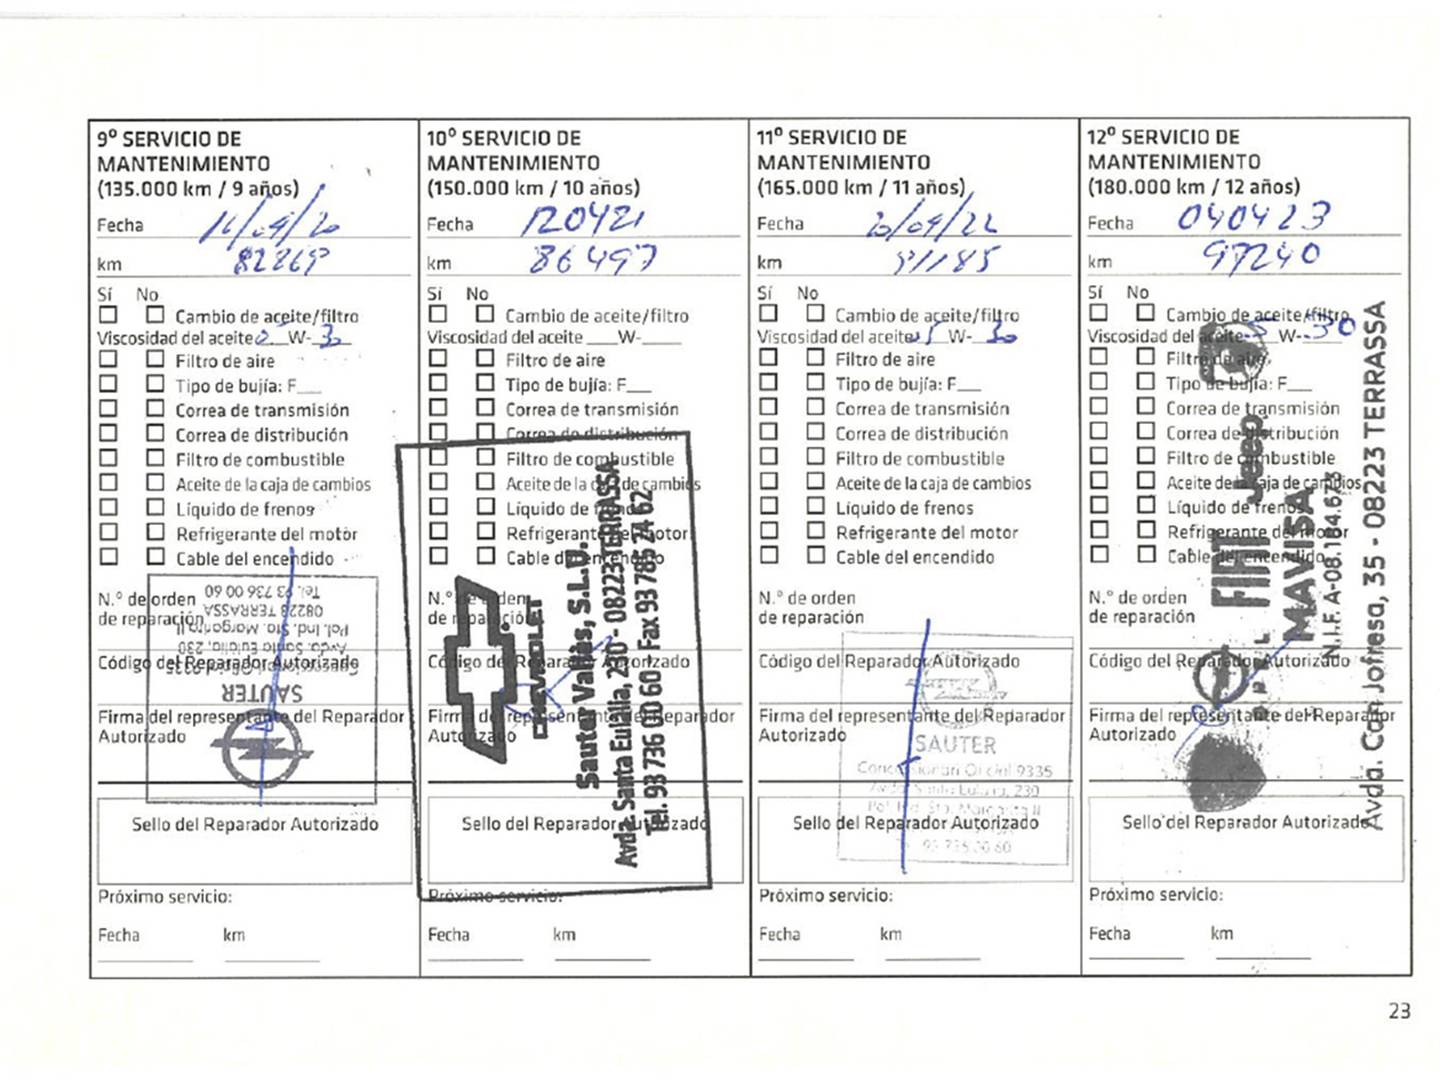 9º SERVICIO DE
MANTENIMIENTO
(135.000 km / 9 años)
Fecha 16/09/20
km 82269
Sí No
Cambio de aceite/filtro
Viscosidad del aceite 5 W-30
Filtro de aire
Tipo de bujía: F___
Correa de transmisión
Correa de distribución
Filtro de combustible
Aceite de la caja de cambios
Líquido de frenos
Refrigerante del motor
Cable del encendido
N.º de orden
de reparación
Código del Reparador Autorizado
Firma del representante del Reparador
Autorizado
SAUTER
Avda. Santa Eulalia, 230
Pol. Ind. Sta. Margarita II
08223 TERRASSA
Tel. 93 736 00 60
Sello del Reparador Autorizado
Próximo servicio:
Fecha km
10º SERVICIO DE
MANTENIMIENTO
(150.000 km / 10 años)
Fecha 120421
km 86497
Sí No
Cambio de aceite/filtro
Viscosidad del aceite ___W-___
Filtro de aire
Tipo de bujía: F___
Correa de transmisión
Correa de distribución
Filtro de combustible
Aceite de la caja de cambios
Líquido de frenos
Refrigerante del motor
Cable del encendido
N.º de orden
de reparación
Código del Reparador Autorizado
Firma del representante del Reparador
Autorizado
CHEVROLET
Sauter Vallès, S.L.U.
Avda. Santa Eulalia, 230 - 08223 TERRASSA
Tel. 93 736 00 60 Fax 93 785 74 62
Sello del Reparador Autorizado
Próximo servicio:
Fecha km
11º SERVICIO DE
MANTENIMIENTO
(165.000 km / 11 años)
Fecha 20/04/22
km 91185
Sí No
Cambio de aceite/filtro
Viscosidad del aceite 5 W-30
Filtro de aire
Tipo de bujía: F___
Correa de transmisión
Correa de distribución
Filtro de combustible
Aceite de la caja de cambios
Líquido de frenos
Refrigerante del motor
Cable del encendido
N.º de orden
de reparación
Código del Reparador Autorizado
Firma del representante del Reparador
Autorizado
SAUTER
9335
230
Sello del Reparador Autorizado
Próximo servicio:
Fecha km
12º SERVICIO DE
MANTENIMIENTO
(180.000 km / 12 años)
Fecha 040423
km 97240
Sí No
Cambio de aceite/filtro
Viscosidad del aceite 5 W-30
Filtro de aire
Tipo de bujía: F___
Correa de transmisión
Correa de distribución
Filtro de combustible
Aceite de la caja de cambios
Líquido de frenos
Refrigerante del motor
Cable del encendido
N.º de orden
de reparación
Código del Reparador Autorizado
Firma del representante del Reparador
Autorizado
OPEL FIAT Jeep
MAVISA
N.I.F. A-08.184.673
Avda. Can Jofresa, 35 - 08223 TERRASSA
Sello del Reparador Autorizado
Próximo servicio:
Fecha km
23